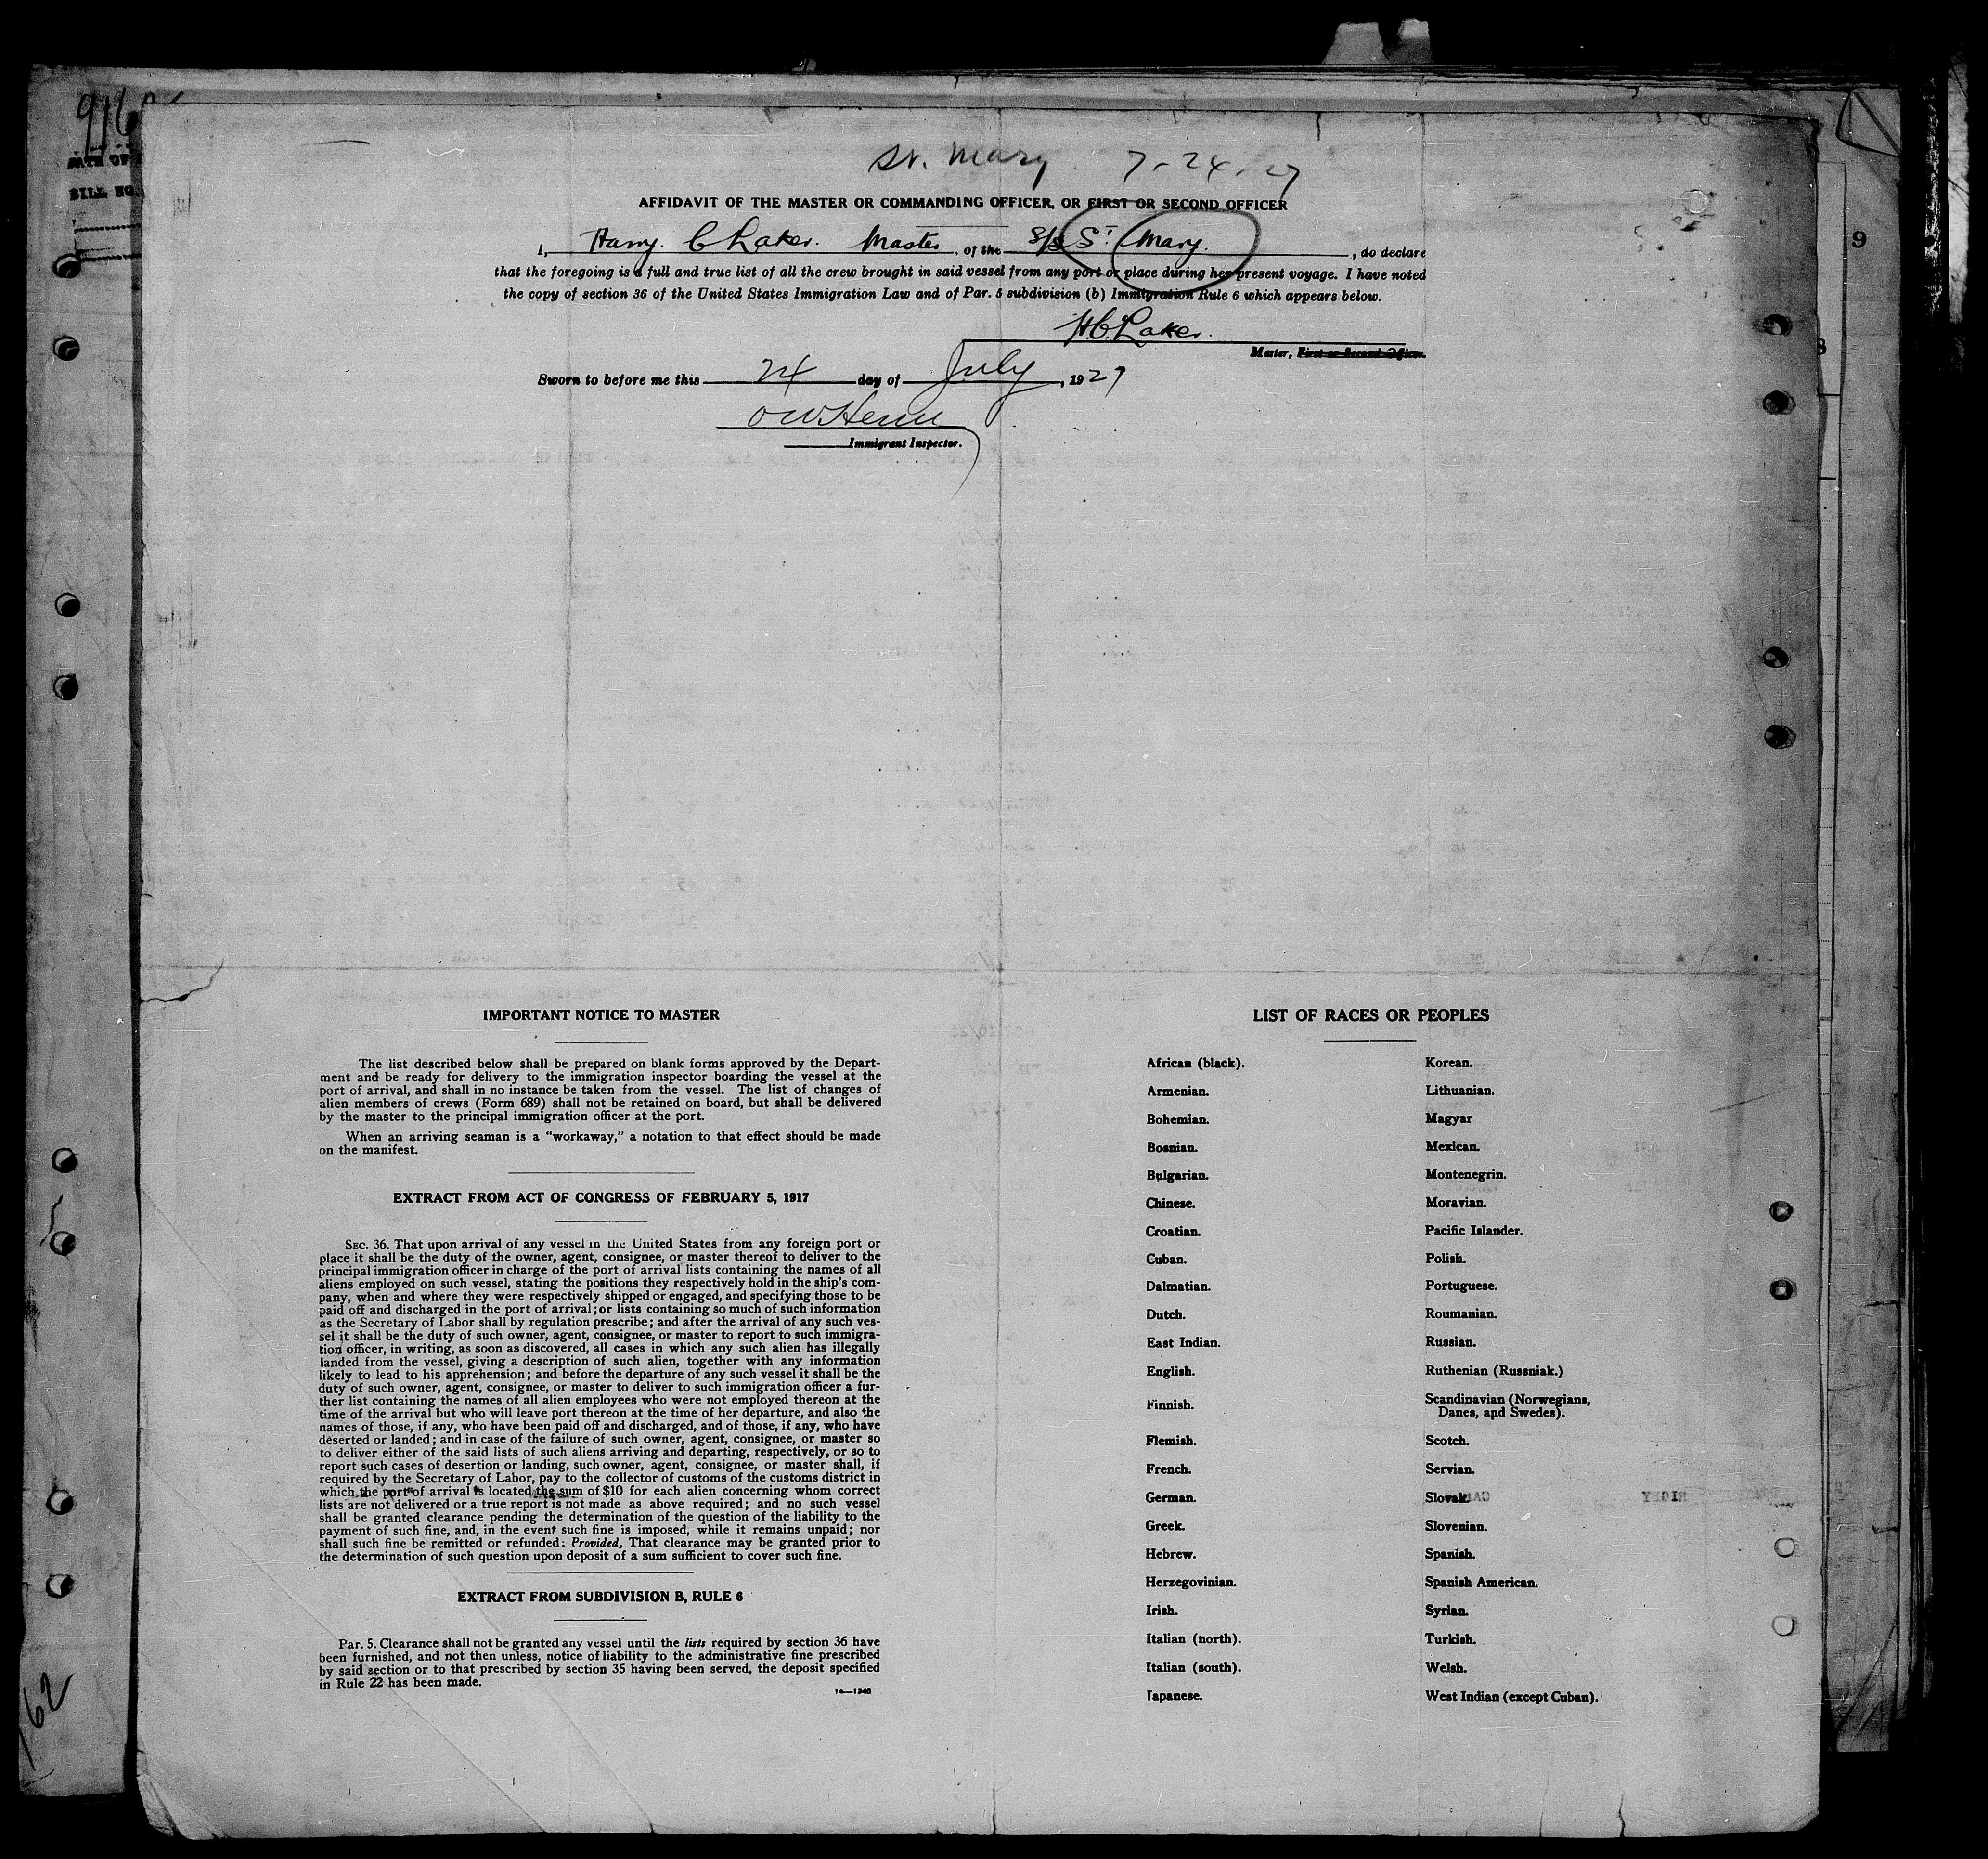 916
DATE OF
BILL NO.
St. Mary 7-24-27
AFFIDAVIT OF THE MASTER OR COMMANDING OFFICER, OR FIRST OR SECOND OFFICER
I, Harry C Laker. Master, of the S/S St Mary., do declare
that the foregoing is a full and true list of all the crew brought in said vessel from any port or place during her present voyage. I have noted
the copy of section 36 of the United States Immigration Law and of Par. 5 subdivision (b) Immigration Rule 6 which appears below.
H.C. Laker.
Master, First or Second Officer.
Sworn to before me this 24 day of July, 1927
Immigrant Inspector.
9
IMPORTANT NOTICE TO MASTER
The list described below shall be prepared on blank forms approved by the Depart-
ment and be ready for delivery to the immigration inspector boarding the vessel at the
port of arrival, and shall in no instance be taken from the vessel. The list of changes of
alien members of crews (Form 689) shall not be retained on board, but shall be delivered
by the master to the principal immigration officer at the port.
When an arriving seaman is a "workaway," a notation to that effect should be made
on the manifest.
EXTRACT FROM ACT OF CONGRESS OF FEBRUARY 5, 1917
SEC. 36. That upon arrival of any vessel in the United States from any foreign port or
place it shall be the duty of the owner, agent, consignee, or master thereof to deliver to the
principal immigration officer in charge of the port of arrival lists containing the names of all
aliens employed on such vessel, stating the positions they respectively hold in the ship's com-
pany, when and where they were respectively shipped or engaged, and specifying those to be
paid off and discharged in the port of arrival; or lists containing so much of such information
as the Secretary of Labor shall by regulation prescribe; and after the arrival of any such ves-
sel it shall be the duty of such owner, agent, consignee, or master to report to such immigra-
tion officer, in writing, as soon as discovered, all cases in which any such alien has illegally
landed from the vessel, giving a description of such alien, together with any information
likely to lead to his apprehension; and before the departure of any such vessel it shall be the
duty of such owner, agent, consignee, or master to deliver to such immigration officer a fur-
ther list containing the names of all alien employees who were not employed thereon at the
time of the arrival but who will leave port thereon at the time of her departure, and also the
names of those, if any, who have been paid off and discharged, and of those, if any, who have
deserted or landed; and in case of the failure of such owner, agent, consignee, or master so
to deliver either of the said lists of such aliens arriving and departing, respectively, or so to
report such cases of desertion or landing, such owner, agent, consignee, or master shall, if
required by the Secretary of Labor, pay to the collector of customs of the customs district in
which the port of arrival is located the sum of $10 for each alien concerning whom correct
lists are not delivered or a true report is not made as above required; and no such vessel
shall be granted clearance pending the determination of the question of the liability to the
payment of such fine, and, in the event such fine is imposed, while it remains unpaid; nor
shall such fine be remitted or refunded: Provided, That clearance may be granted prior to
the determination of such question upon deposit of a sum sufficient to cover such fine.
EXTRACT FROM SUBDIVISION B, RULE 6
Par. 5. Clearance shall not be granted any vessel until the lists required by section 36 have
been furnished, and not then unless, notice of liability to the administrative fine prescribed
by said section or to that prescribed by section 35 having been served, the deposit specified
in Rule 22 has been made.
14—1240
162
LIST OF RACES OR PEOPLES
African (black).
Armenian.
Bohemian.
Bosnian.
Bulgarian.
Chinese.
Croatian.
Cuban.
Dalmatian.
Dutch.
East Indian.
English.
Finnish.
Flemish.
French.
German.
Greek.
Hebrew.
Herzegovinian.
Irish.
Italian (north).
Italian (south).
Japanese.
Korean.
Lithuanian.
Magyar
Mexican.
Montenegrin.
Moravian.
Pacific Islander.
Polish.
Portuguese.
Roumanian.
Russian.
Ruthenian (Russniak.)
Scandinavian (Norwegians,
Danes, and Swedes).
Scotch.
Servian.
Slovak.
Slovenian.
Spanish.
Spanish American.
Syrian.
Turkish.
Welsh.
West Indian (except Cuban).